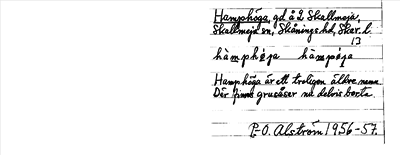 Hamphöga, gd å 2 Skallmeja,
Skallmeja sn, Skånings hd, Skar. l.
13
hàmphø̀ja hàmpøja
Hamphöga är ett troligen äldre namn
Där finns grusåser nu delvis borta.
P-O. Alström 1956-57.